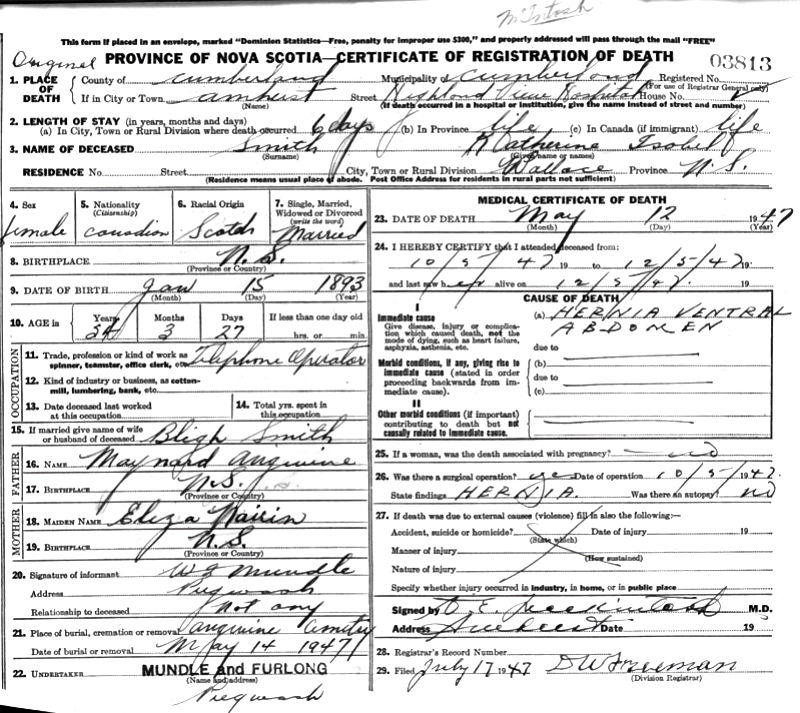 McIntosh
This form if placed in an envelope, marked "Dominion Statistics—Free, penalty for improper use $300," and properly addressed will pass through the mail "FREE"
Original PROVINCE OF NOVA SCOTIA—CERTIFICATE OF REGISTRATION OF DEATH 03813
1. PLACE OF DEATH County of Cumberland Municipality of Cumberland Registered No.
(For use of Registrar General only)
If in City or Town Amherst Street Highland View Hospital House No.
(Name) (If death occurred in a hospital or institution, give the name instead of street and number)
2. LENGTH OF STAY (in years, months and days)
(a) In City, Town or Rural Division where death occurred 6 days (b) In Province life (c) In Canada (if immigrant) life
3. NAME OF DECEASED Smith Katherine Isobel
(Surname) (Given name or names)
RESIDENCE No. Street City, Town or Rural Division Wallace Province N.S.
(Residence means usual place of abode. Post Office Address for residents in rural parts not sufficient)
4. Sex female
5. Nationality (Citizenship) Canadian
6. Racial Origin Scotch
7. Single, Married, Widowed or Divorced (write the word) Married
8. BIRTHPLACE N.S.
(Province or Country)
9. DATE OF BIRTH Jan 15 1893
(Month) (Day) (Year)
10. AGE in Years 54 Months 3 Days 27 If less than one day old
hrs. or min.
OCCUPATION
11. Trade, profession or kind of work as spinner, teamster, office clerk, etc. Telephone Operator
12. Kind of industry or business, as cotton-mill, lumbering, bank, etc.
13. Date deceased last worked at this occupation
14. Total yrs. spent in this occupation
15. If married give name of wife or husband of deceased Bligh Smith
FATHER
16. NAME Maynard Angwine
17. BIRTHPLACE N.S.
(Province or Country)
MOTHER
18. MAIDEN NAME Eliza
19. BIRTHPLACE N.S.
(Province or Country)
20. Signature of informant W G Mundle
Address Pugwash
Relationship to deceased Not any
21. Place of burial, cremation or removal Angwine Cemetery
Date of burial or removal May 14 1947
22. UNDERTAKER MUNDLE and FURLONG
(Name and address)
Pugwash
MEDICAL CERTIFICATE OF DEATH
23. DATE OF DEATH May 12 1947
(Month) (Day) (Year)
24. I HEREBY CERTIFY that I attended deceased from:
10/5/47 19 to 12/5/47 19
and last saw her alive on 12/5/47. 19
CAUSE OF DEATH
I
Immediate cause
Give disease, injury or complication which caused death, not the mode of dying, such as heart failure, asphyxia, asthenia, etc.
(a) HERNIA VENTRAL
ABDOMEN
due to
Morbid conditions, if any, giving rise to immediate cause (stated in order proceeding backwards from immediate cause)
(b)
due to
(c)
II
Other morbid conditions (if important) contributing to death but not causally related to immediate cause.
25. If a woman, was the death associated with pregnancy? no
26. Was there a surgical operation? yes Date of operation 10/5/1947.
State findings HERNIA. Was there an autopsy? no
27. If death was due to external causes (violence) fill in also the following:—
Accident, suicide or homicide? Date of injury 19
(State which)
Manner of injury
(How sustained)
Nature of injury
Specify whether injury occurred in industry, in home, or in public place
Signed by D. E. Mackintosh M.D.
Address Amherst Date 19
28. Registrar's Record Number
29. Filed July 17 1947 D W Freeman
(Division Registrar)